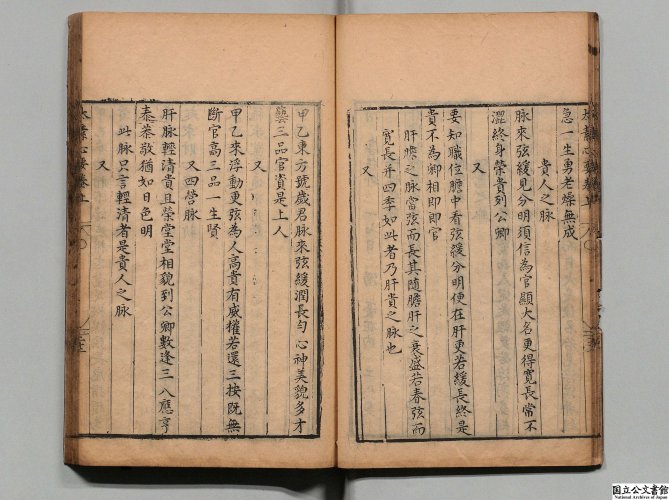 急一生勇老燥無成
貴人之脉
脉來弦緩見分明須信為官顯大名更得寛長常不
澀終身榮貴到公卿
又
要知職位膽中看弦緩分明便在肝更若緩長終是
貴不為卿相即郎官
肝膽之脉當弦而長其随膽肝之衰盛若春弦而
寛長并四季如此者乃肝貴之脉也
又
甲乙東方號歲君脉來弦緩潤長勻心神美貌多才
藝三品官資是上人
又
甲乙來浮動更弦為人高貴有威權若還三按既無
斷官高三品一生賢
又四營脉
肝脉輕清貴且榮堂堂相貌到公卿數逢三八應亨
泰恭敬猶如日色明
此脉只言輕清者是貴人之脉
又
太素心要卷上
国立公文書館
National Archives of Japan